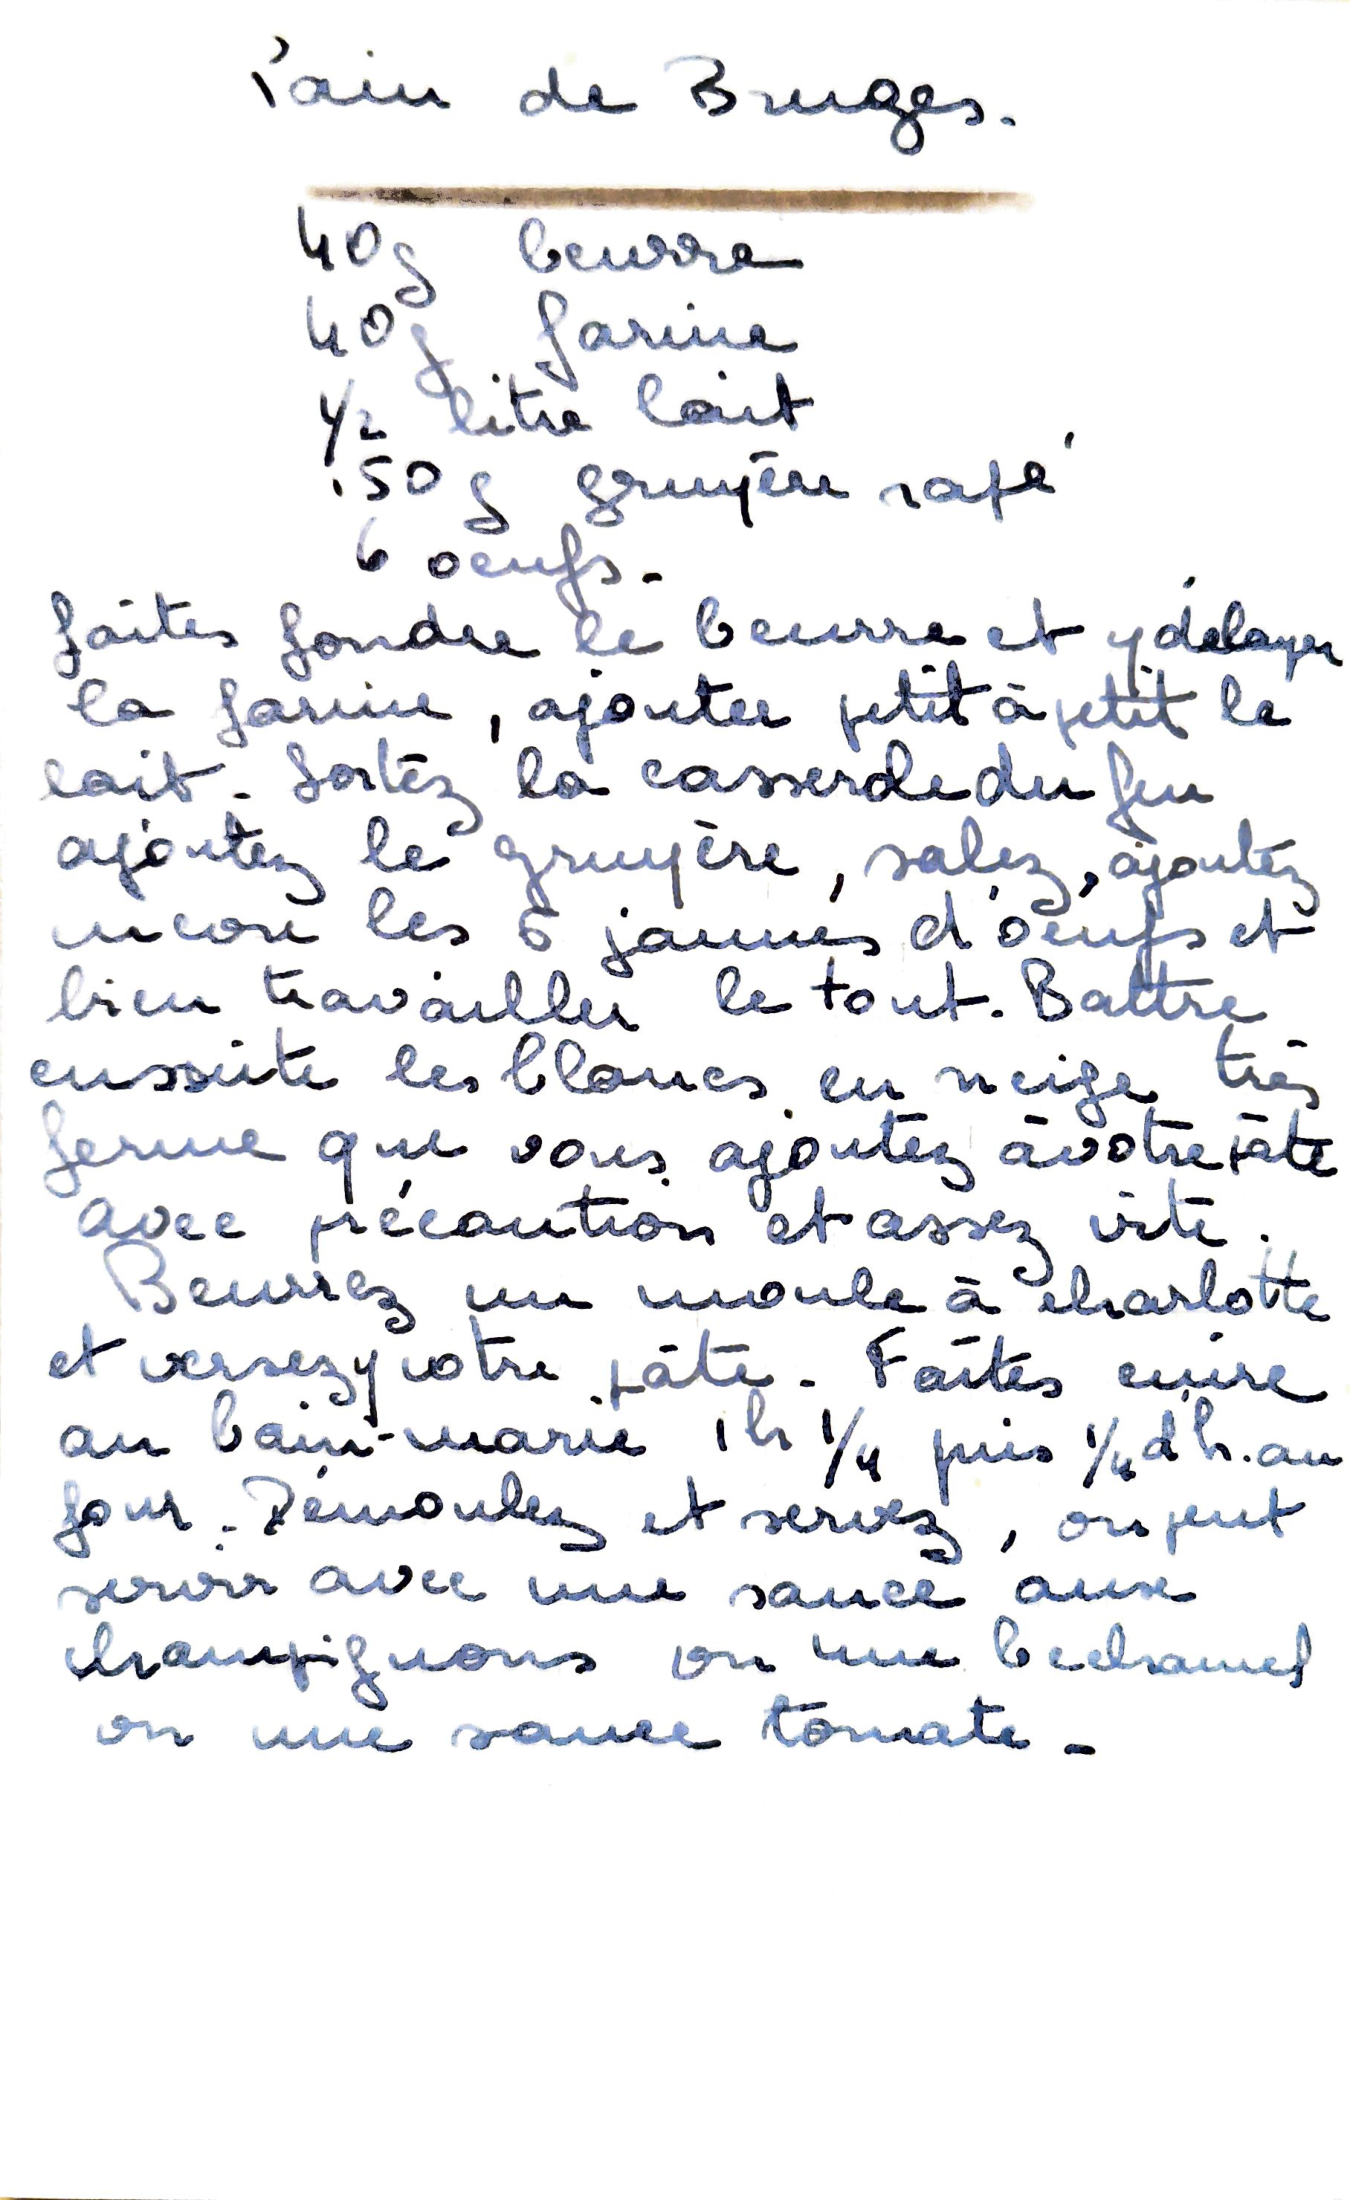 Pain de Bruges.
40g beurre
40g farine
1/2 litre lait
150g gruyère rapé
6 oeufs.
faites fondre le beurre et y délayer
la farine, ajouter petit à petit le
lait. Sortez la casserole du feu
ajoutez le gruyère, salez, ajoutez
encore les 6 jaunes d'oeufs et
bien travailler le tout. Battre
enssuite les blancs en neige très
ferme que vous ajoutez à votre pâte
avec précaution et assez vite.
Beurrez un moule à charlotte
et versez y votre pâte. Faites cuire
au bain-marie 1h 1/4 puis 1/4 d'h. au
four. Démoulez et servez, on peut
servir avec une sauce aux
champignons ou une bechamel
ou une sauce tomate.